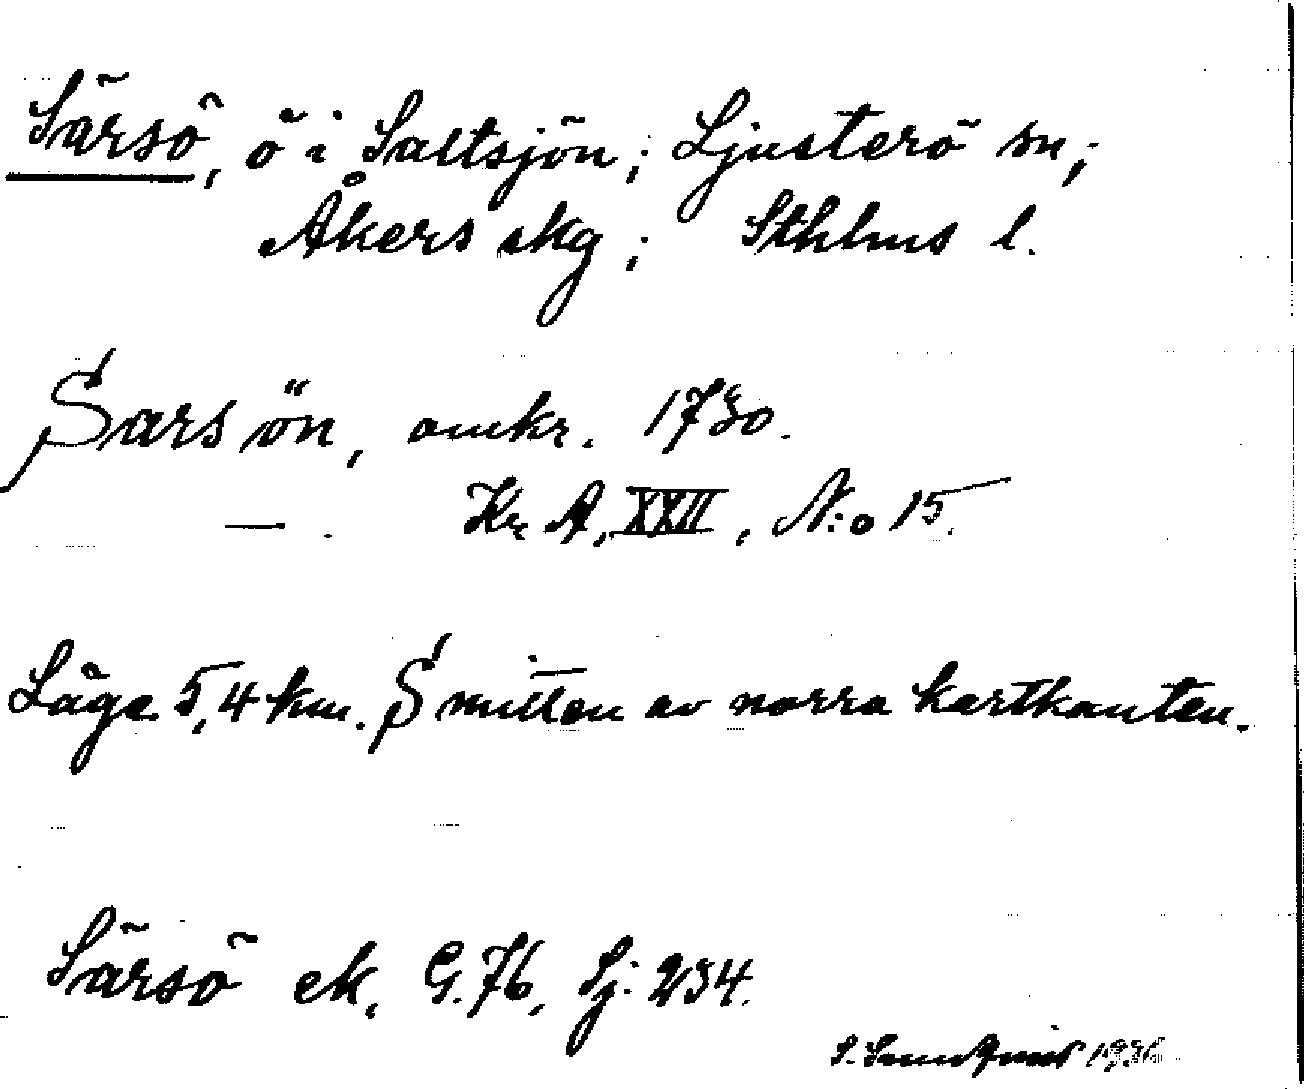 Särsö, ö i Saltsjön; Ljusterö sn;
Åkers skg; Sthlms l.
Sarsön, omkr. 1730.
— . Kr A, XXII, N:o 15.
Läge 5,4 km. S mitten av norra kartkanten.
Särsö ek. G.76, Sj: 234.
1936